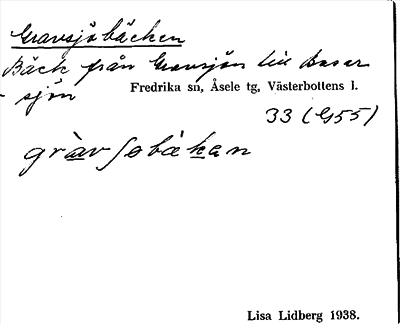 Gravsjöbäcken
Bäck från Gravsjön till
- sjön
Fredrika sn, Åsele tg, Västerbottens l.
33 (G55)
Lisa Lidberg 1938.